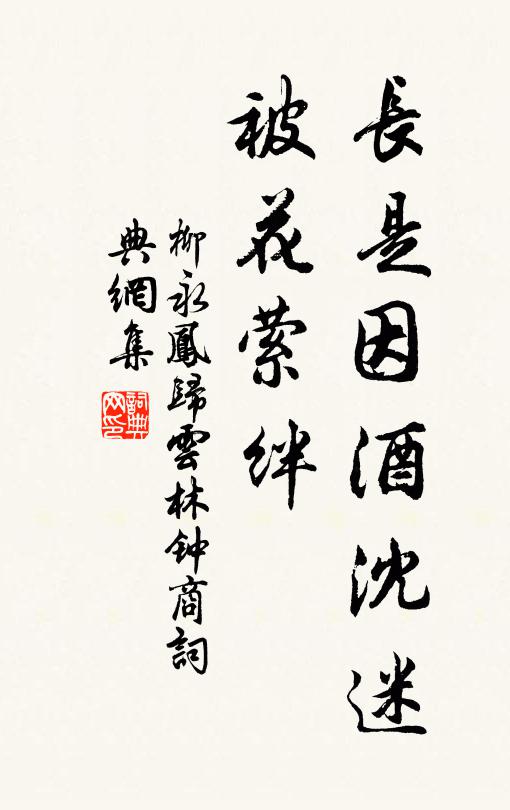 長是因酒沈迷
被花萦絆
柳永鳳歸雲林钟商詞
典網集
詞典网印